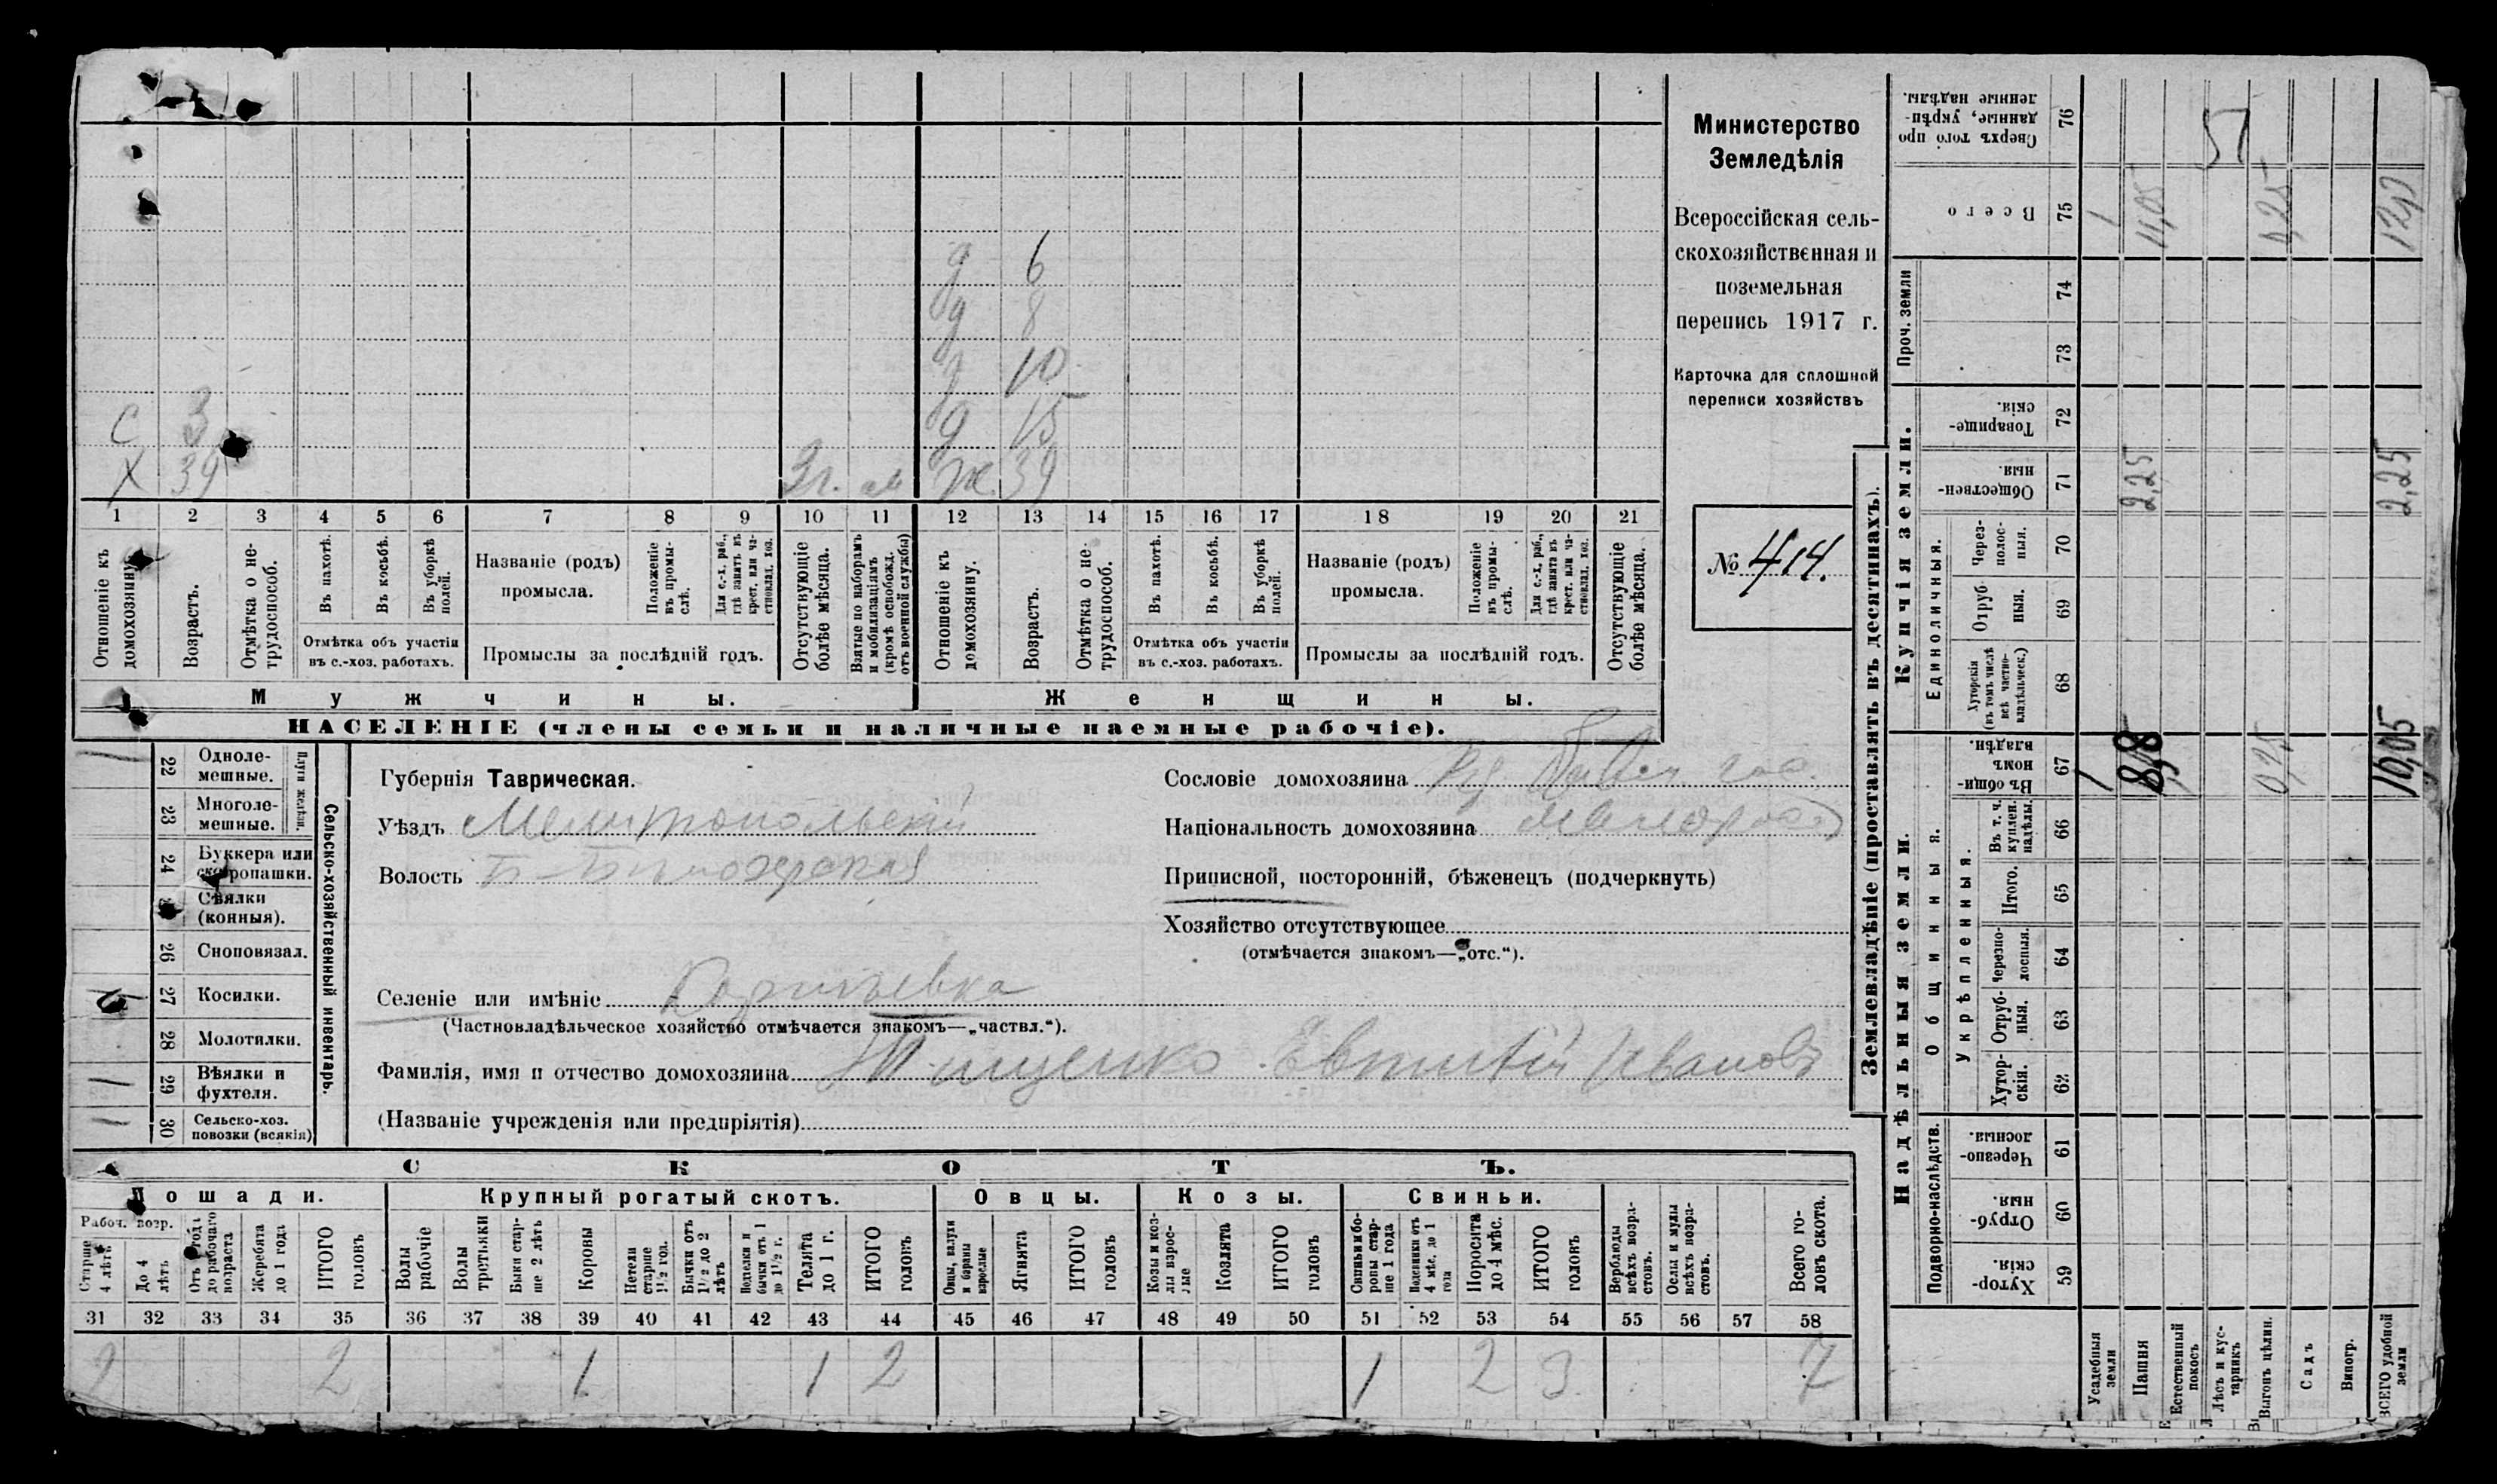 Министерство
Земледѣлія
Всероссійская сель-
скохозяйственная и
поземельная
перепись 1917 г.
Карточка для сплошной
переписи хозяйствъ
№ 414.
д 6
д 8
д 10
С 3 д 15
Х 39 3г. м Ж. 39
1 2 3 4 5 6 7 8 9 10 11 12 13 14 15 16 17 18 19 20 21
Отношеніе къ домохозяину.
Возрастъ.
Отмѣтка о не-трудоспособ.
Въ пахотѣ.
Въ косьбѣ.
Въ уборкѣ полей.
Отмѣтка объ участіи
въ с.-хоз. работахъ.
Названіе (родъ)
промысла.
Положеніе въ промы-слѣ.
Для с.-х. раб., гдѣ занятъ въ крест. или ча-стновлад. хоз.
Промыслы за послѣдній годъ.
Отсутствующіе болѣе мѣсяца.
Взятые по наборамъ и мобилизаціямъ (кромѣ освобожд. отъ военной службы)
Отношеніе къ домохозяину.
Возрастъ.
Отмѣтка о не-трудоспособ.
Въ пахотѣ.
Въ косьбѣ.
Въ уборкѣ полей.
Отмѣтка объ участіи
въ с.-хоз. работахъ.
Названіе (родъ)
промысла.
Положеніе въ промы-слѣ.
Для с.-х. раб., гдѣ занята въ крест. или ча-стновлад. хоз.
Промыслы за послѣдній годъ.
Отсутствующіе болѣе мѣсяца.
Мужчины. Женщины.
НАСЕЛЕНІЕ (члены семьи и наличные наемные рабочіе).
Сельско-хозяйственный инвентарь.
Плуги желѣзн.
22 Одноле-мешные.
23 Многоле-мешные.
24 Буккера или скоропашки.
Сѣялки (конныя).
26 Сноповязал.
27 Косилки.
28 Молотилки.
29 Вѣялки и фухтеля.
30 Сельско-хоз. повозки (всякія)
Губернія Таврическая.
Уѣздъ Мелитопольскій
Волость Б-Бѣлозерская
Селеніе или имѣніе
(Частновладѣльческое хозяйство отмѣчается знакомъ—„частвл.“).
Фамилія, имя и отчество домохозяина Тищенко Евтихій Иванов
(Названіе учрежденія или предпріятія)
Сословіе домохозяина
Національность домохозяина малоросс
Приписной, посторонній, бѣженецъ (подчеркнуть)
Хозяйство отсутствующее
(отмѣчается знакомъ—„отс.“).
СКОТЪ.
Лошади. Крупный рогатый скотъ. Овцы. Козы. Свиньи.
Рабоч. возр.
Старше 4 лѣтъ
До 4 лѣтъ
Отъ 1 года до рабочаго возраста
Жеребята до 1 года
ИТОГО головъ
Волы рабочіе
Волы третьяки
Быки стар-ше 2 лѣтъ
Коровы
Нетели старше 1½ год.
Бычки отъ 1½ до 2 лѣтъ
Подтелки и бычки отъ 1 до 1½ г.
Телята до 1 г.
ИТОГО головъ
Овцы, валухи и бараны взрослые
Ягнята
ИТОГО головъ
Козы и коз-лы взрос-лые
Козлята
ИТОГО головъ
Свиньи и бо-ровы стар-ше 1 года
Подсвинки отъ 4 мѣс. до 1 года
Поросята до 4 мѣс.
ИТОГО головъ
Верблюды всѣхъ возра-стовъ.
Ослы и мулы всѣхъ возра-стовъ.
Всего го-ловъ скота.
31 32 33 34 35 36 37 38 39 40 41 42 43 44 45 46 47 48 49 50 51 52 53 54 55 56 57 58
2 2 1 1 2 1 2 3 7
Землевладѣніе (проставлять въ десятинахъ).
Купчія земли.
Надѣльныя земли.
Сверхъ того про-данные, укрѣп-ленные надѣлы. 76
Всего 75
Проч. земли 74 73
Товарище-скія. 72
Обществен-ныя. 71
Единоличныя.
Черезполос-ныя. 70
Отруб-ныя. 69
Хуторскія (въ томъ числѣ всѣ частно-владѣльческ.) 68
Общинныя.
Въ общин-номъ владѣн. 67
Укрѣпленныя.
Въ т. ч. куплен. надѣлы. 66
Итого. 65
Черезпо-лосныя. 64
Отруб-ныя. 63
Хутор-скія. 62
Подворно-наслѣдств.
Черезпо-лосныя. 61
Отруб-ныя. 60
Хутор-скія. 59
Усадебныя земли 1 1
Пашня 8,8 2,25 11,05
Естественный покосъ
Лѣсъ и кус-тарникъ
Выгонъ цѣлин. 0,25 0,25
Садъ
Виногр.
ВСЕГО удобной земли 10,05 2,25
51